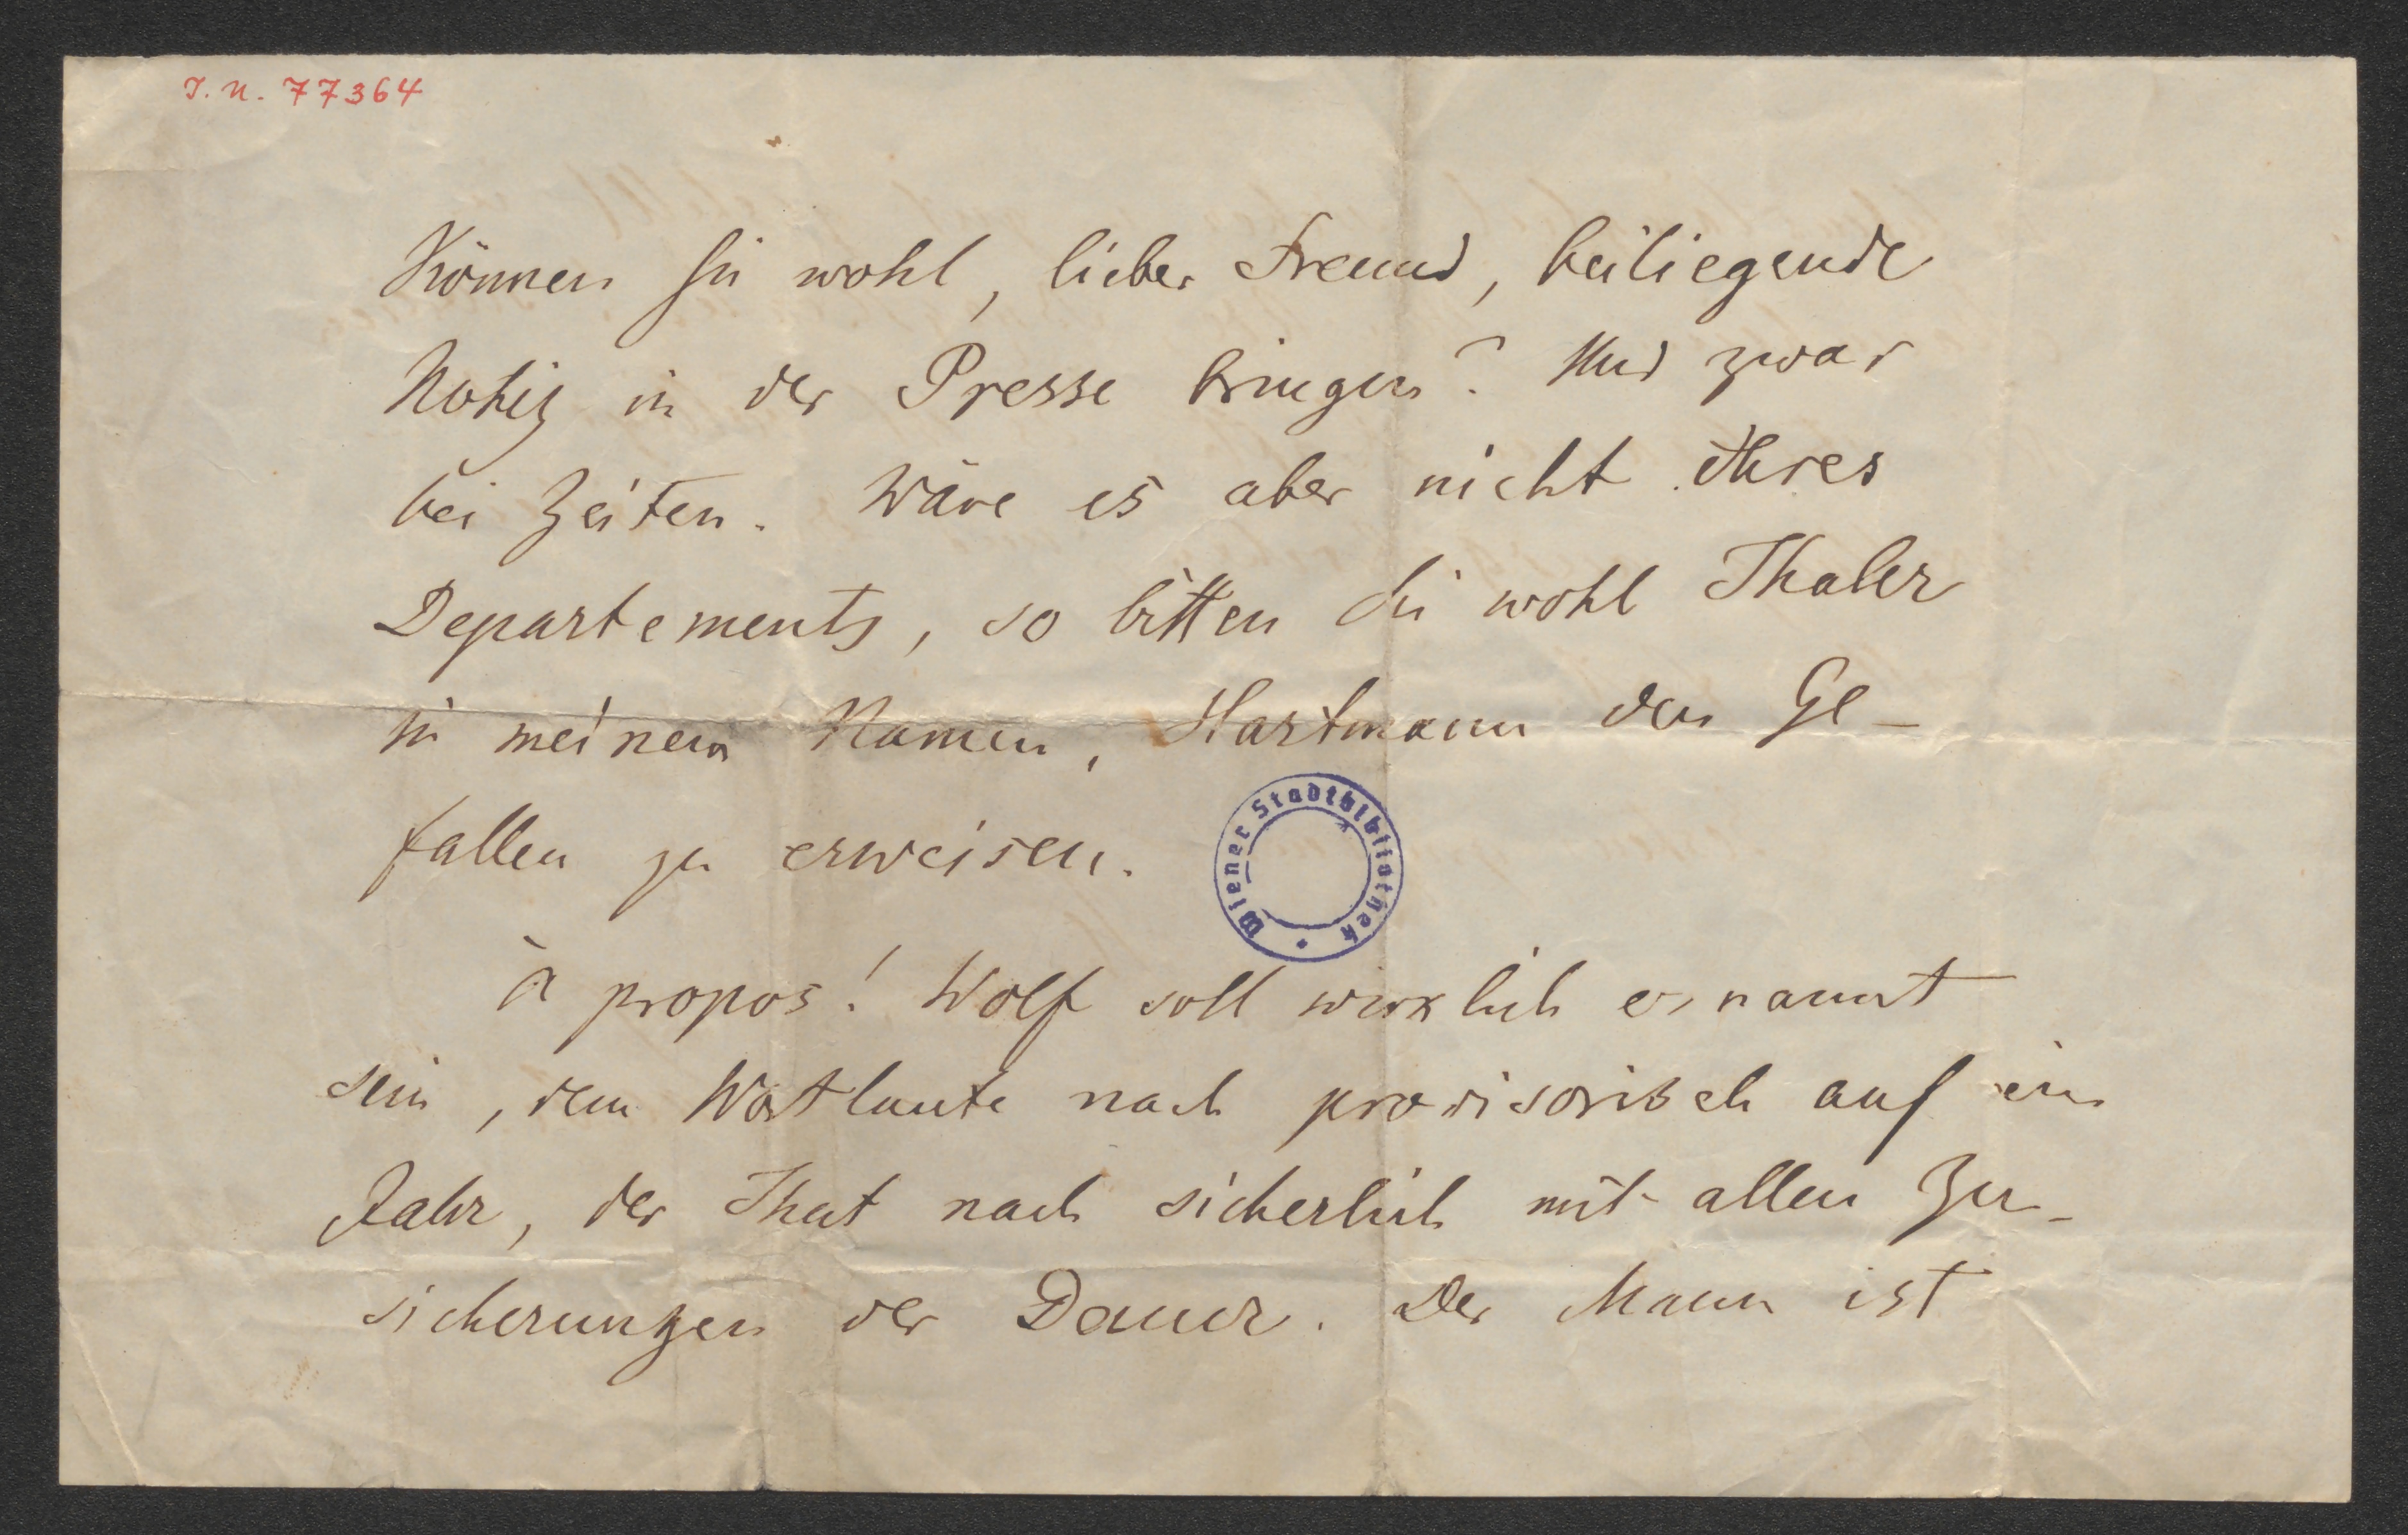 I. N. 77364
Können Sie wohl, lieber Freund, beiliegende
Notiz in der Presse bringen? Und zwar
bei Zeiten. Wäre es aber nicht Ihres
Departements, so bitten Sie wohl Thaler
in meinem Namen, Hartmann den Ge-
fallen zu erweisen.
Wiener Stadtbibliothek
à propos! Wolf soll wirklich ernannt
sein, dem Wortlaute nach provisorisch auf ein
Jahr, der That nach sicherlich mit allen Zu-
sicherungen der Dauer. Der Mann ist